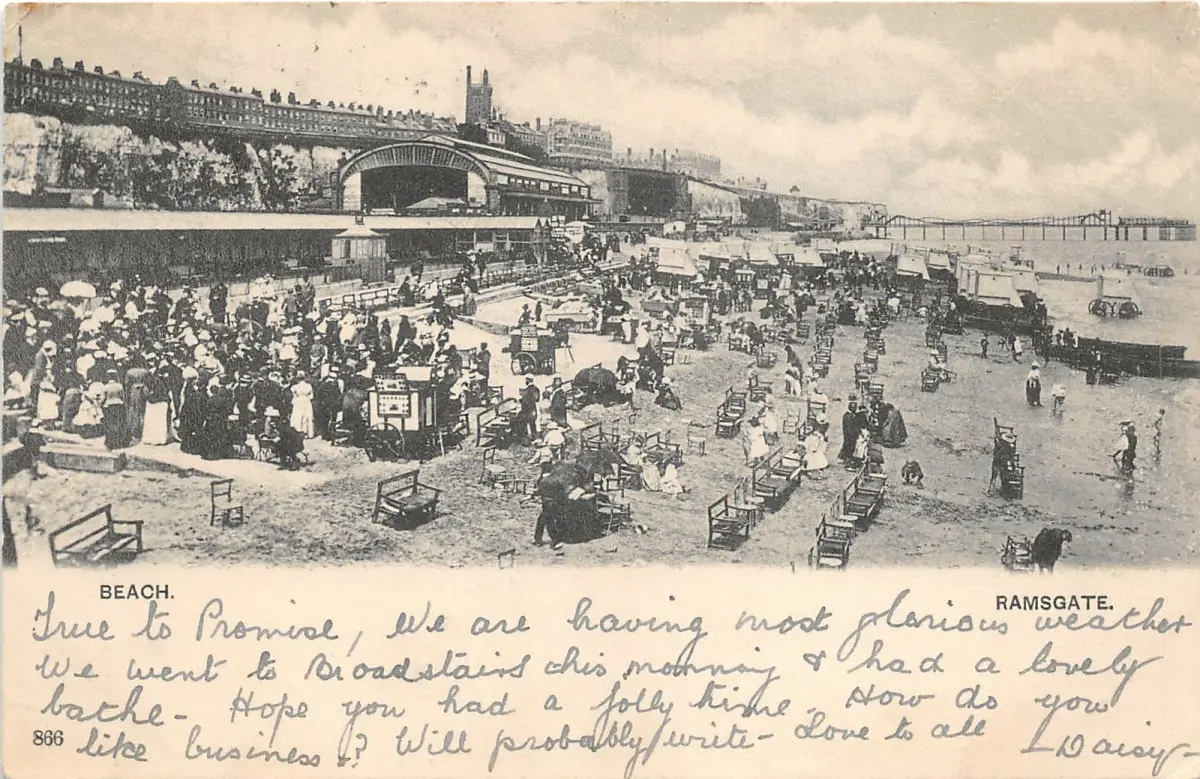 BEACH.
RAMSGATE.
True to Promise, We are having most glorious weather
We went to Broadstairs this morning & had a lovely
bathe - Hope you had a jolly time. How do you
866
like business? Will probably write - Love to all - Daisy -